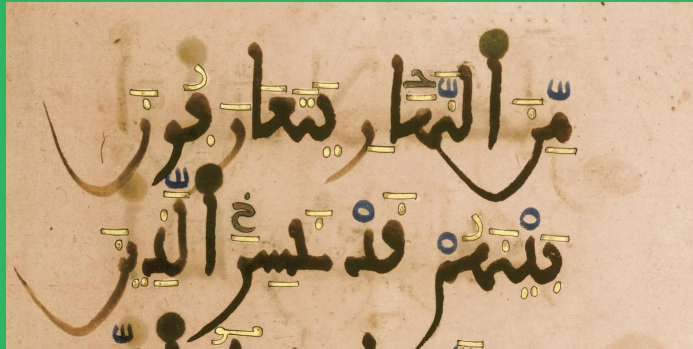 مِّنَ ٱلنَّهَارِ يَتَعَارَفُونَ
بَيْنَهُمْ قَدْ خَسِرَ ٱلَّذِينَ